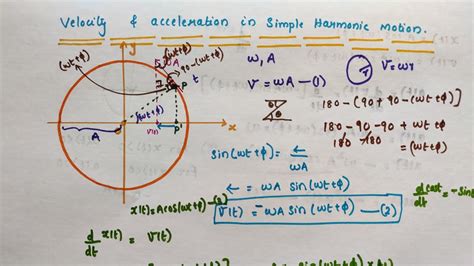 Velocity & acceleration in Simple Harmonic motion.
y
(ωt+φ)
ωA
(ωt+φ)
90-(ωt+φ)
P
t
(ωt+φ)
A
P'
x
ω, A
v = ωA —(1)
v = ωr
180-(90+90-(ωt+φ)
180-90-90+ωt+φ
180 180 = (ωt+φ)
sin(ωt+φ) = ← / ωA
← = ωA sin(ωt+φ)
x(t)=Acos(ωt+φ)—(2)
v(t) = -ωA sin(ωt+φ) —(3)
d/dt x(t) = v(t)
d cost/dt = -sint